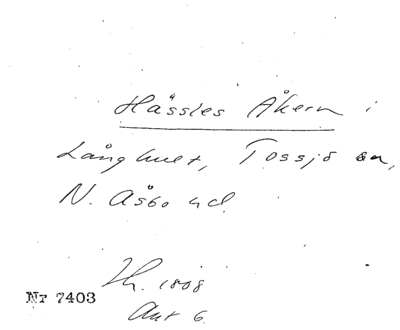 Hässles Åkern i
Långhult, Tossjö sn,
N. Åsbo hd.
Th. 1808
Akt 6.
Nr 7403